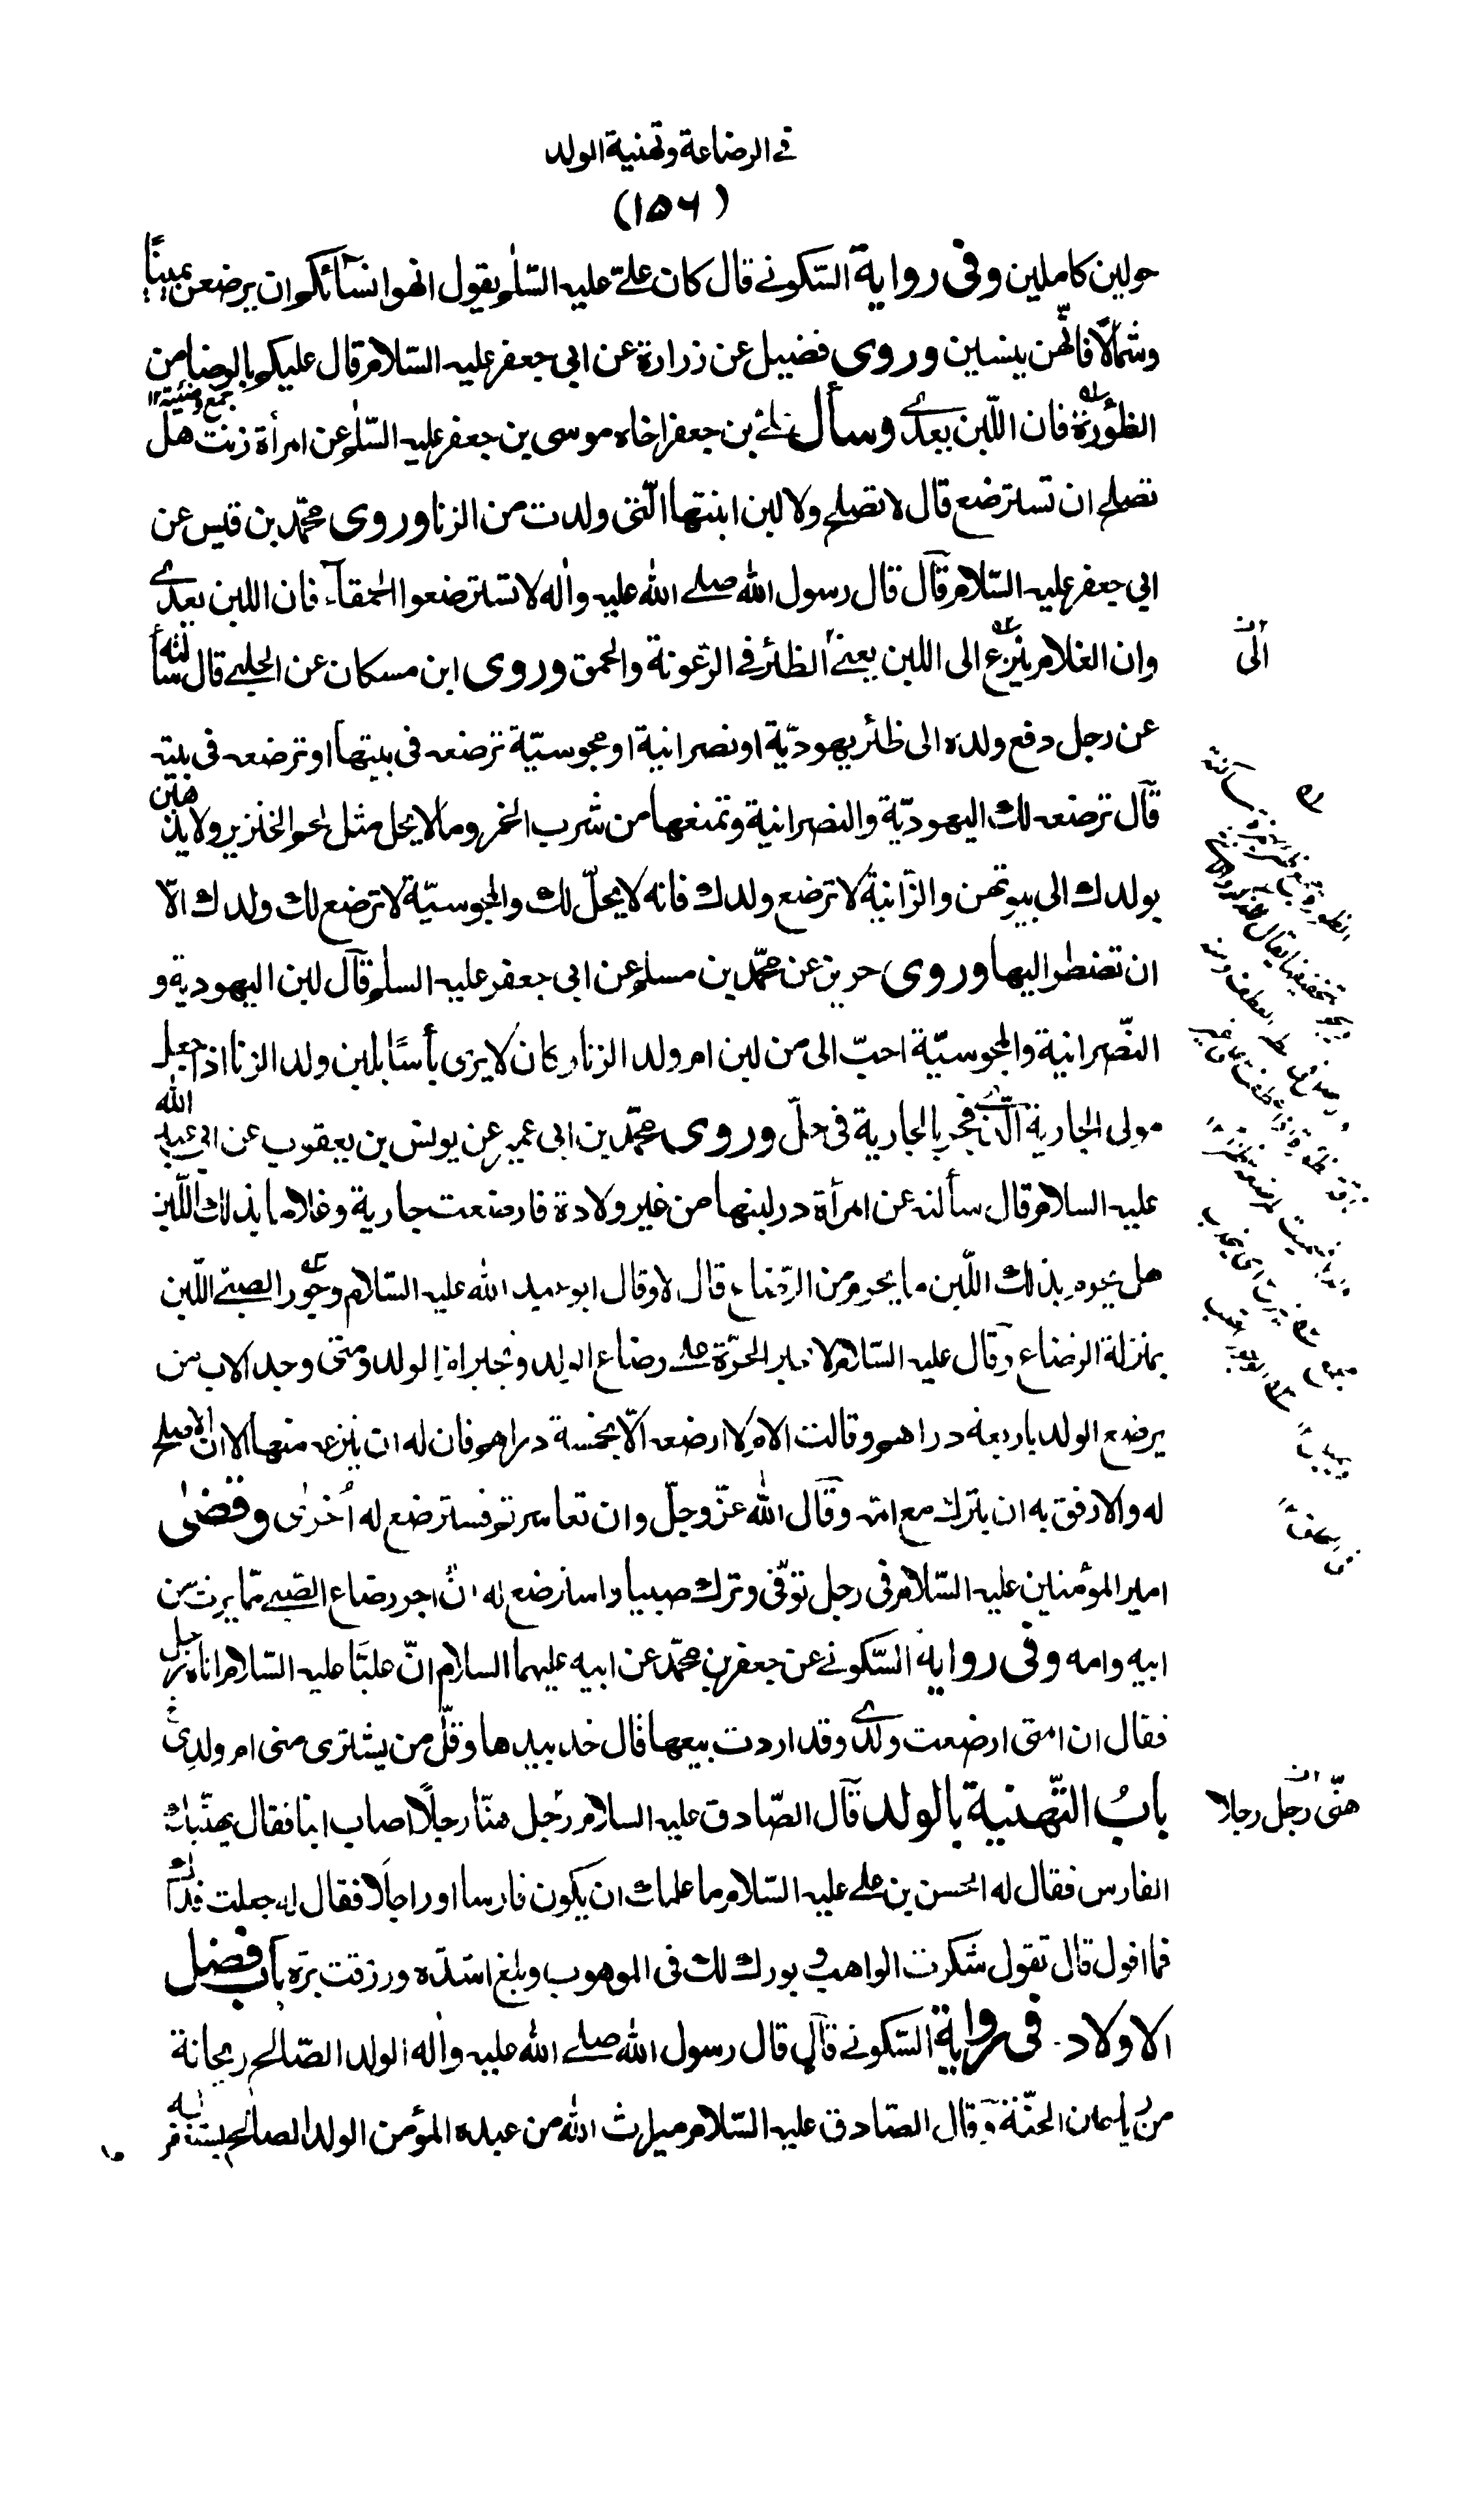 في الرضاعة وتهنية الولد
(١٥٦)
حولين كاملين وفى رواية السّكونے قال كان علىّ عليه السّلم يقول انهوا نسآئكم ان يرضعن يمينًا
وشمالًا فانّهن ينسين وروى فضيل عن زرارة عن ابي جعفر عليه السّلام قال عليكم بالوضاء من
الظؤرة فان اللّبن يعدے وسأل علے بن جعفر اخاه موسى بن جعفر عليه السّلم عن امرأة زنت هل
تصلح ان تسترضع قال لا تصلح ولا لبن ابنتها الّتى ولدت من الزنا وروى محمّد بن قيس عن
ابي جعفر عليه السّلام قال قال رسول الله صلے الله عليه واٰله لا تسترضعوا الحمقآء فان اللبن يعدے
وان الغلام ينزع الى اللبن يعنے الظئر في الرّعونة والحمق وروى ابن مسكان عن الحلبے قال سألته
الى
عن رجل دفع ولده الى ظئر يهوديّة او نصرانية او مجوسيّة ترضعه فى بيتها او ترضعه فى بيته
قال ترضعه لك اليهوديّة والنصرانية وتمنعها من شرب الخمر وما لا يحل مثل لحم الخنزير ولا يذهبن
بولدك الى بيوتهن والزّانية لا ترضع ولدك فانه لا يحلّ لك والمجوسيّة لا ترضع لك ولدك الّا
ان تضطر اليها وروى حريز عن محمّد بن مسلم عن ابى جعفر عليه السلم قال لبن اليهودية و
النّصرانية والمجوسيّة احبّ الى من لبن ام ولد الزنا وكان لا يرى بأسًا بلبن ولد الزنا اذا جعل
مولى الجارية الّذے فجر بالجارية فى حلّ وروى محمّد بن ابى عمير عن يونس بن يعقوب عن ابى عبد الله
عليه السلام قال سألته عن امرأة در لبنها من غير ولادة فارضعت جارية وغلاما بذلك اللّبن
هل يحرم بذلك اللّبن ما يحرم من الرّضاع قال لا وقال ابو عبد الله عليه السّلام وجور الصبے اللّبن
بمنزلة الرضاع وقال عليه السّلام لا تجبر الحرّة علے رضاع الولد وتجبر ام الولد ومتى وجد الاب من
يرضع الولد باربعة دراهم وقالت الام لا ارضعه الّا بخمسة دراهم فان له ان ينزعه منها الا ان الاصلح
له والارفق به ان يترك مع امه وقال الله عزّ وجلّ وان تعاسرتم فسترضع له اُخرٰى وقضىٰ
امير المؤمنين عليه السّلام فى رجل توّفى وترك صبيا واسترضع له انّ اجر رضاع الصّبے ممّا يرث من
ابيه وامه وفى رواية السّكونے عن جعفر بن محمّد عن ابيه عليهما السلام انّ عليّا عليه السّلام اتاه رجل
فقال ان امتى ارضعت ولدے وقد اردت بيعها قال خذ بيدها وقلّ من يشترى منى ام ولدى
بابُ التّهنية بالولد قال الصّادق عليه السلام رجل هنّا رجلًا اصاب ابنا فقال يهنّيك
هنّى رجل رجلا
الفارس فقال له الحسن بن علے عليه السّلام ما علمك ان يكون فارسا او راجلا فقال له جعلت فداك
فما اقول قال تقول شكرت الواهب وبورك لك فى الموهوب وبلغ اشدّه ورزقت برّه باب فضل
الاولاد. فى رواية السّكونے قال قال رسول الله صلے الله عليه واٰله الولد الصّالح ريحانة
من رياحين الجنّة وقال الصّادق عليه السّلام ميراث الله من عبده المؤمن الولد الصالح يستغفر له